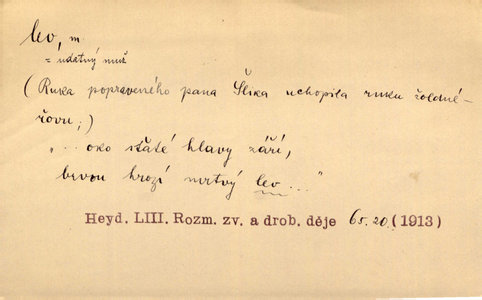 lev, m
= udatný muž
(Ruka popraveného pana Šlika uchopila ruku žoldné-
řovu;)
„.. oko sťaté hlavy září,
brvou hrozí mrtvý lev ..."
Heyd. LIII. Rozm. zv. a drob. děje 65.20. (1913)